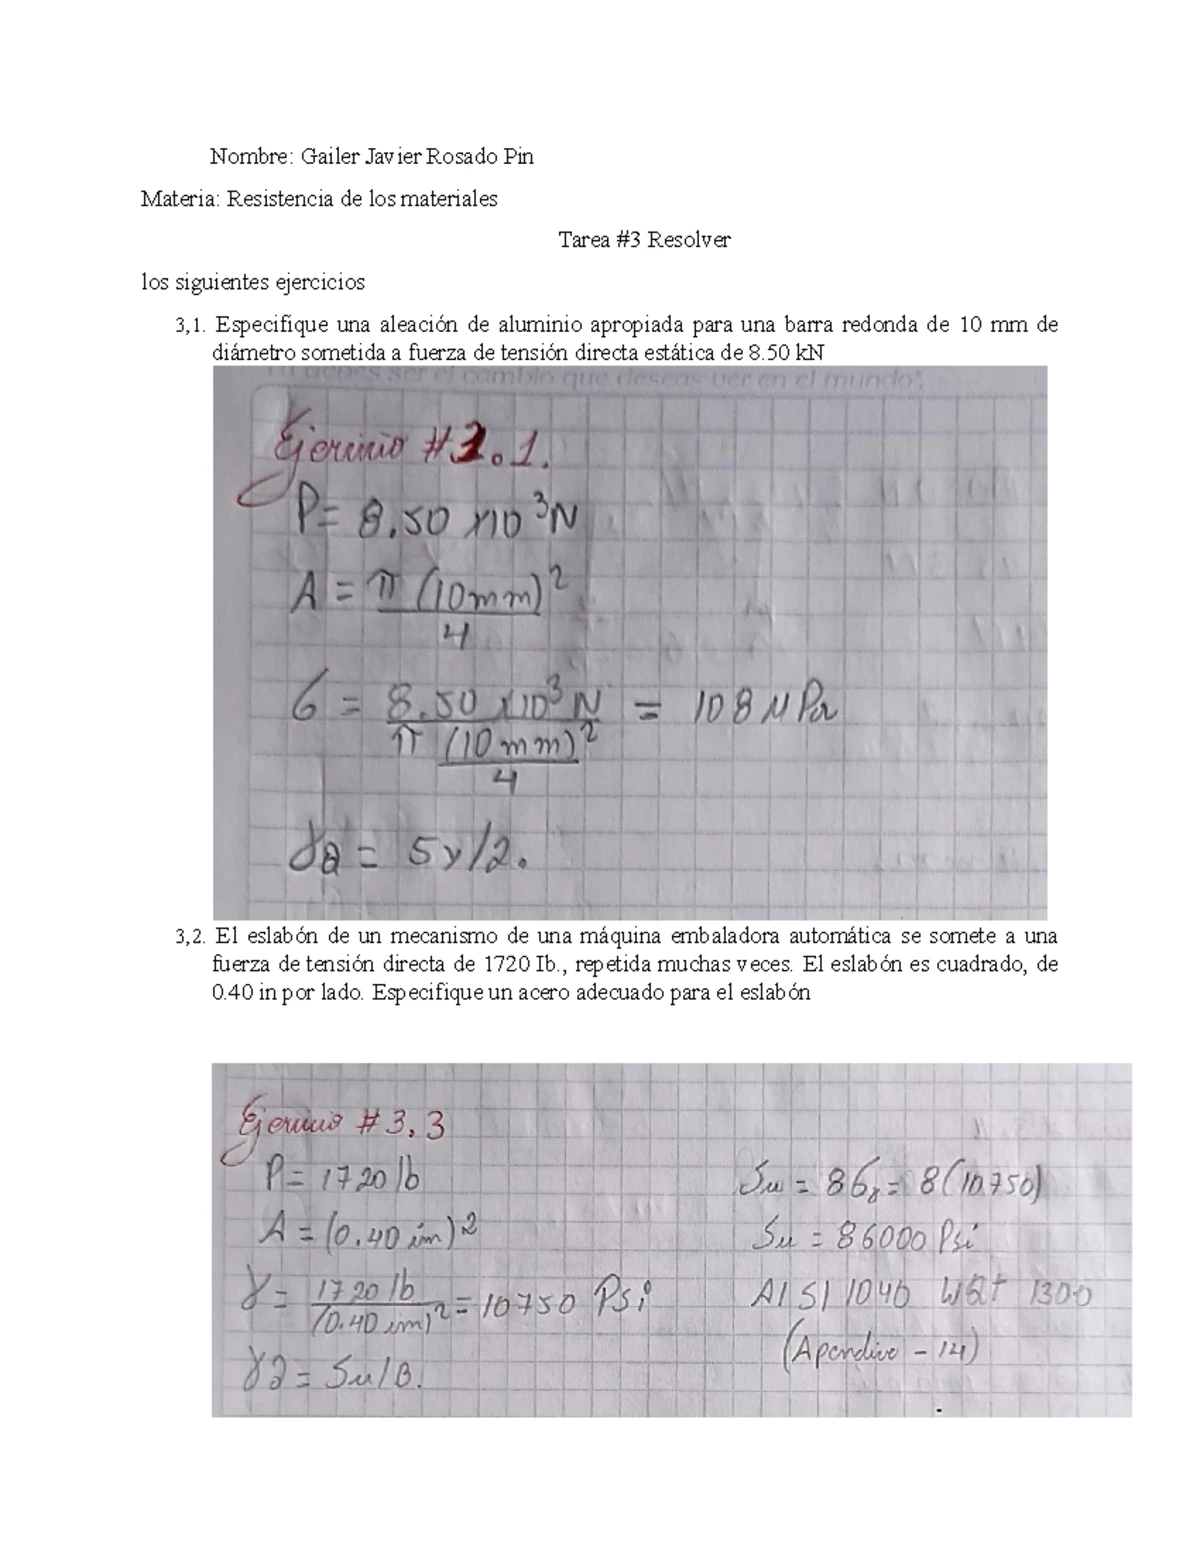 Nombre: Gailer Javier Rosado Pin
Materia: Resistencia de los materiales
Tarea #3 Resolver
los siguientes ejercicios
3,1. Especifique una aleación de aluminio apropiada para una barra redonda de 10 mm de
diámetro sometida a fuerza de tensión directa estática de 8.50 kN
Tu debes ser el cambio que deseas ver en el mundo".
Ejercicio #3.1.
P= 8.50 x10³N
A = π (10mm)²
4
σ = 8.50 x10³ N = 108 MPa
π (10 mm)²
4
γ2 = Sy/2.
3,2. El eslabón de un mecanismo de una máquina embaladora automática se somete a una
fuerza de tensión directa de 1720 Ib., repetida muchas veces. El eslabón es cuadrado, de
0.40 in por lado. Especifique un acero adecuado para el eslabón
Ejercicio #3,3
P= 1720 lb
A = (0.40 im)²
γ= 1720 lb = 10750 Psi
(0.40 im)²
γ2 = Su/8.
Su = 8σ = 8(10.750)
Su = 86000 Psi
AISI 1040 WQT 1300
(Apendice - 14)